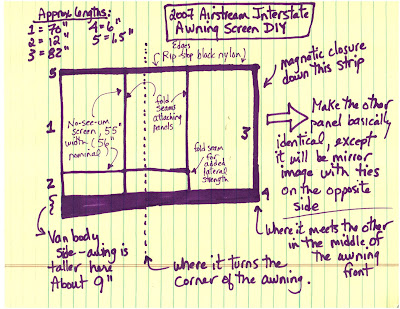 Approx. lengths:
1 = 70" 4 = 6"
2 = 12" 5 = 1.5"
3 = 82"
2007 Airstream Interstate
Awning Screen DIY
Edges
(Rip-stop black nylon)
magnetic closure
down this strip
5
1
2
3
4
5
No-see-um
screen, 55"
width (56"
nominal)
fold
seams
attaching
panels
fold seam
for
added
lateral
strength
Make the other
panel basically
identical, except
it will be mirror
image with ties
on the opposite
side
Van body
side - awning is
taller here
About 9"
Where it turns the
corner of the awning.
Where it meets the other
in the middle of
the awning
front